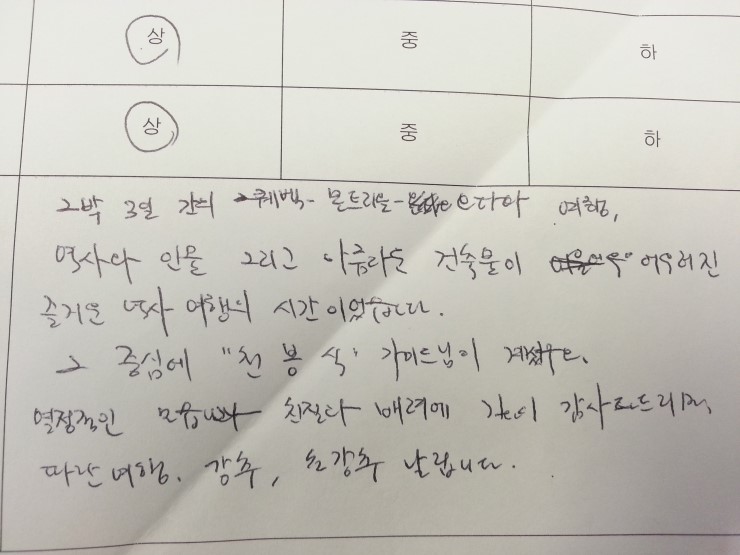 상 중 하
상 중 하
2박 3일 간의 퀘벡-몬트리올- 여행,
역사와 인물 그리고 아름다운 건축물이 어우러진
즐거운 역사 여행의 시간이었습니다.
그 중심에 "천봉식" 가이드님이 계셨구요.
열정적인 친절과 배려에 깊이 감사드리며,
여행. 강추, 초강추 날립니다.